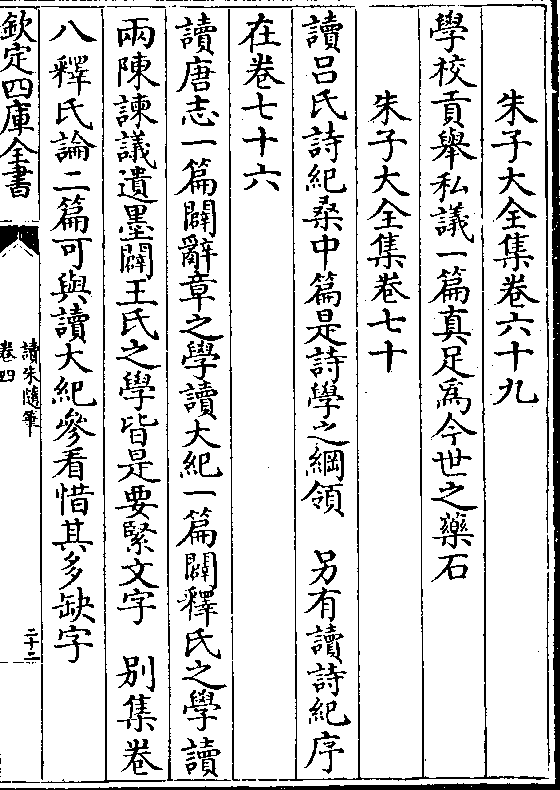 朱子大全集卷六十九
學校貢舉私議一篇真足爲今世之藥石
朱子大全集卷七十
讀吕氏詩紀桑中篇是詩學之綱領　另有讀詩紀序
在卷七十六
讀唐志一篇闢辭章之學讀大紀一篇闢釋氏之學讀
兩陳諫議遺墨闢王氏之學皆是要緊文字　别集卷
八釋氏論二篇可與讀大紀參看惜其多缺字
欽定四庫全書
讀朱隨筆
卷四
二十二